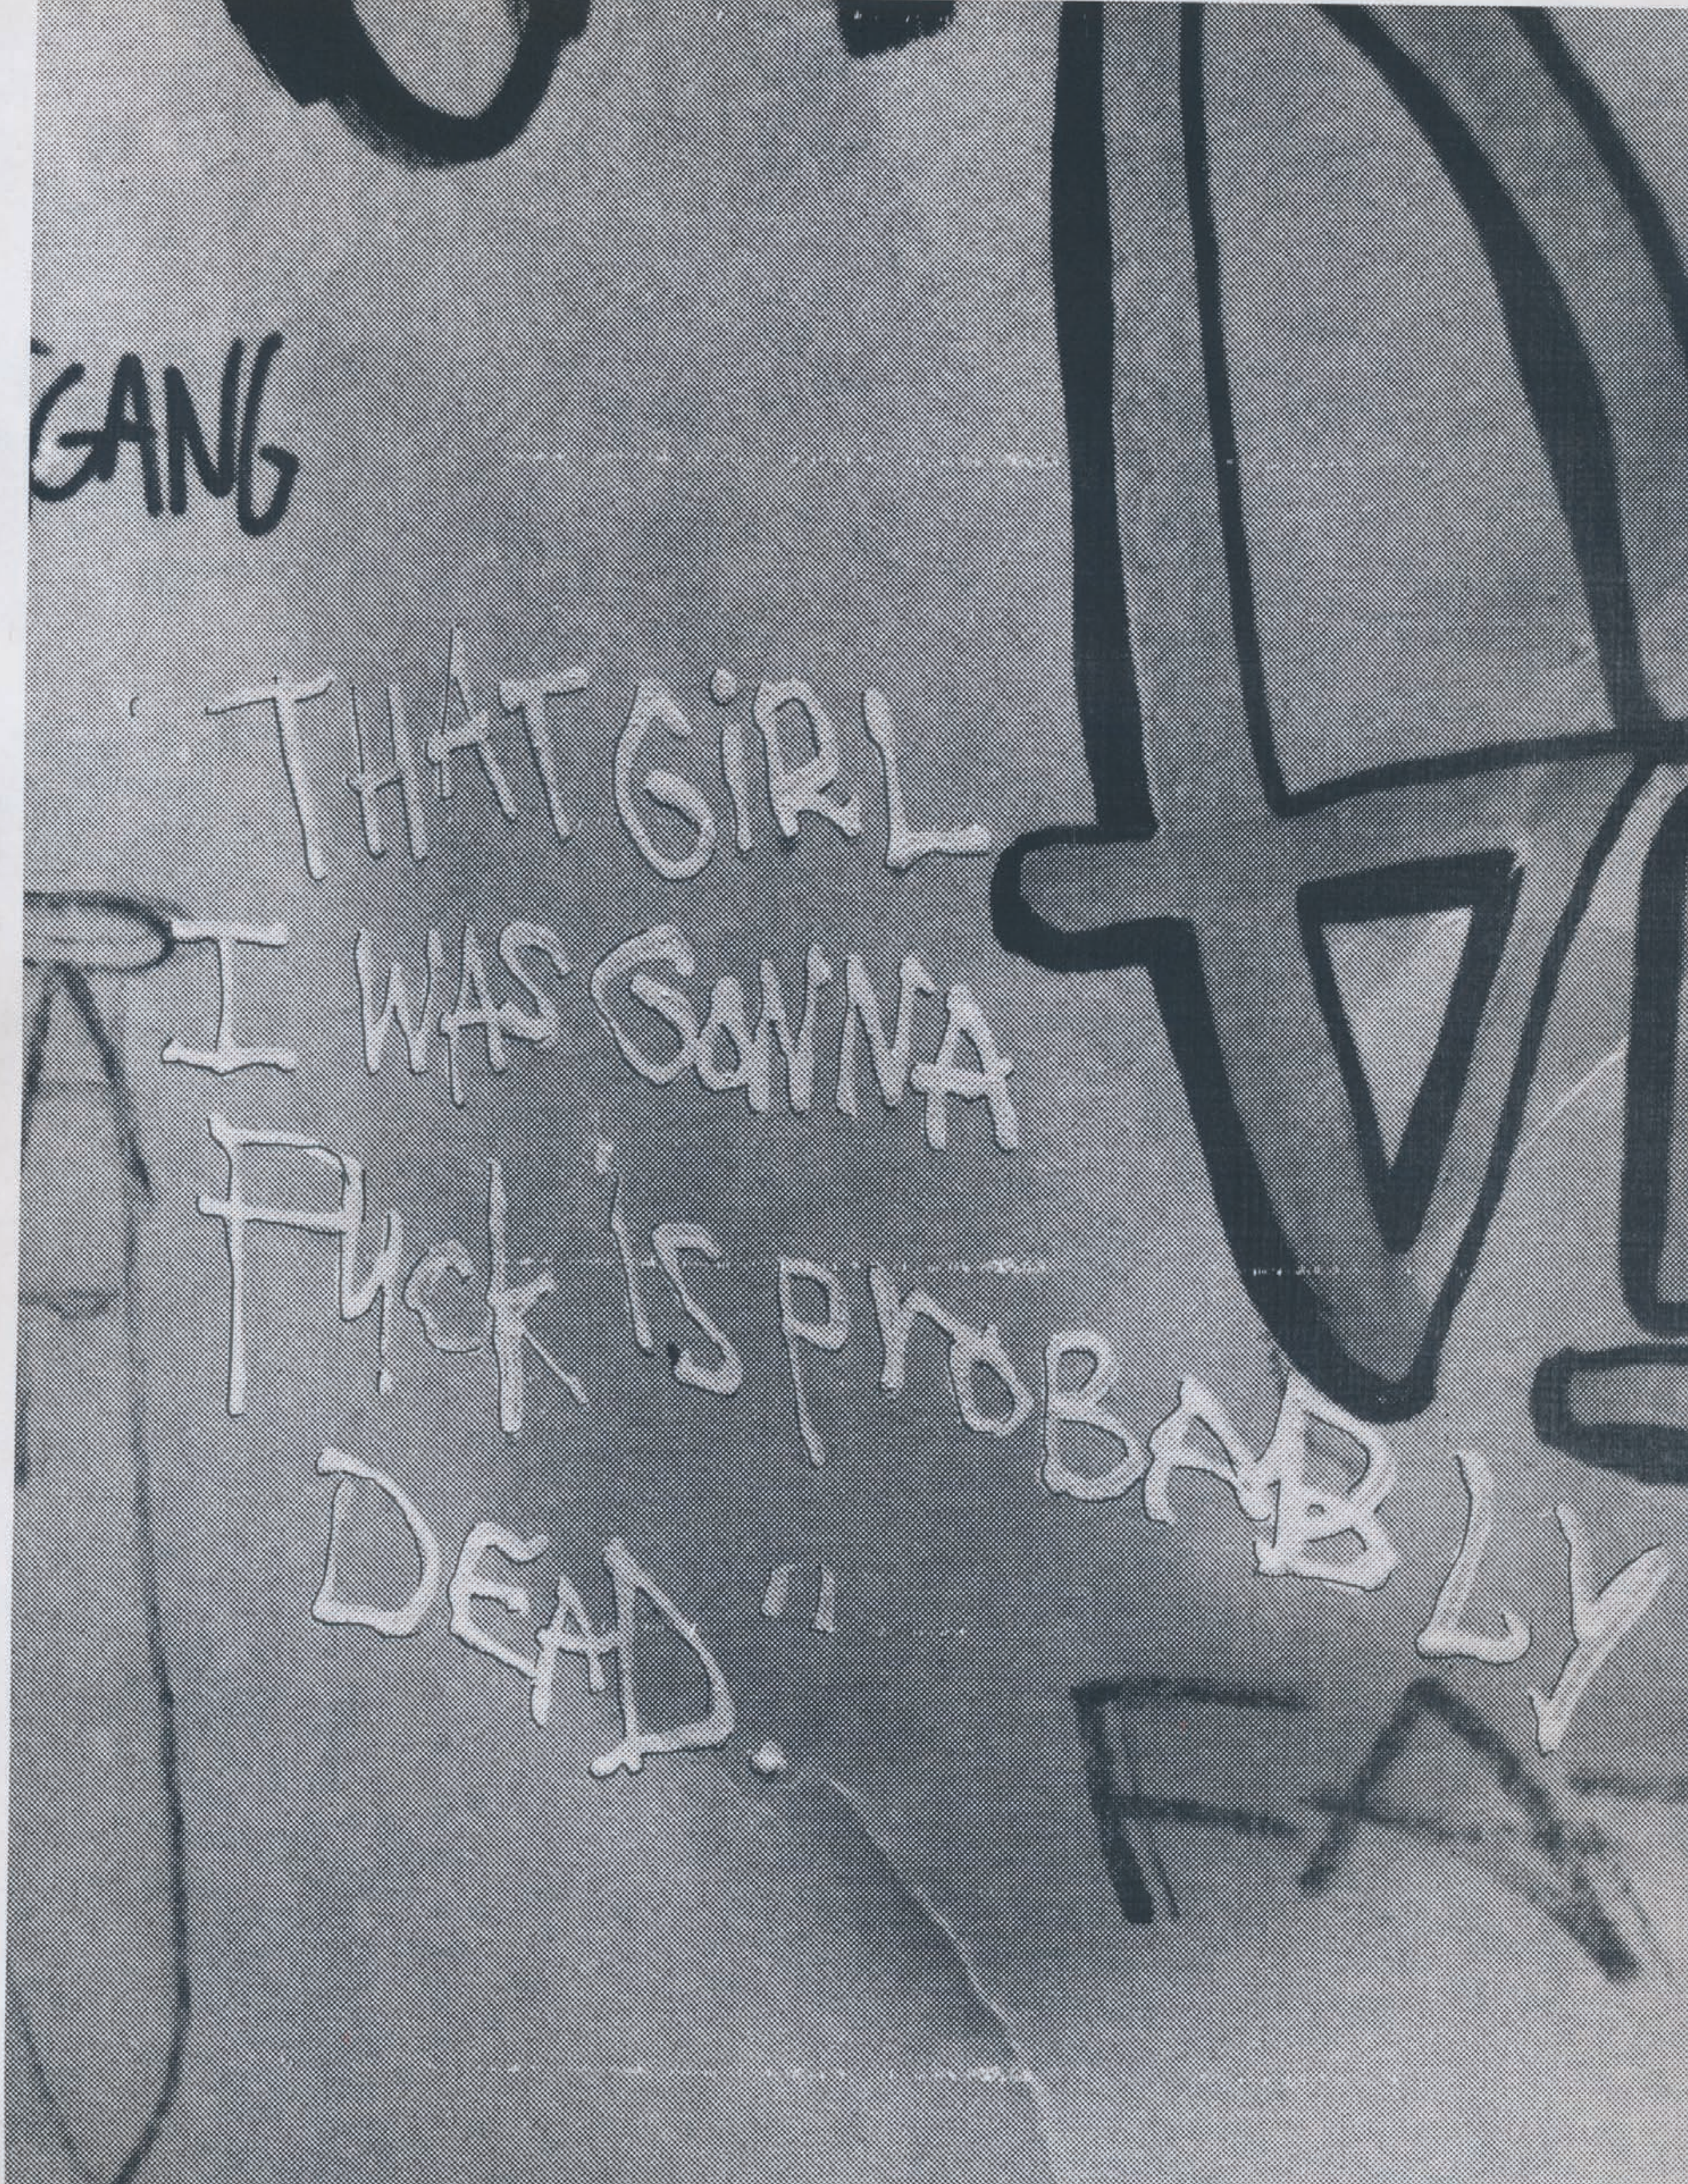 GANG
THAT GiRL
I WAS GoNNA
Fuck iS proBABLY
DEAD."